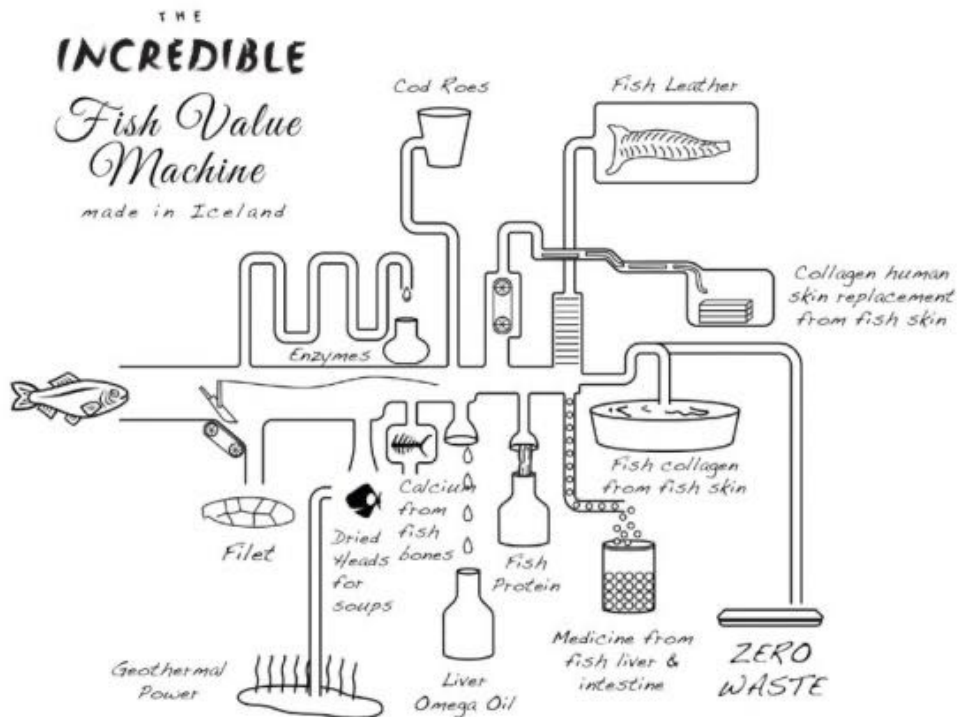 THE
INCREDIBLE
Fish Value
Machine
made in Iceland
Cod Roes
Fish Leather
Collagen human
skin replacement
from fish skin
Enzymes
Fish collagen
from fish skin
Filet
Dried
Heads
for
soups
Calcium
from
fish
bones
Fish
Protein
Geothermal
Power
Liver
Omega Oil
Medicine from
fish liver &
intestine
ZERO
WASTE